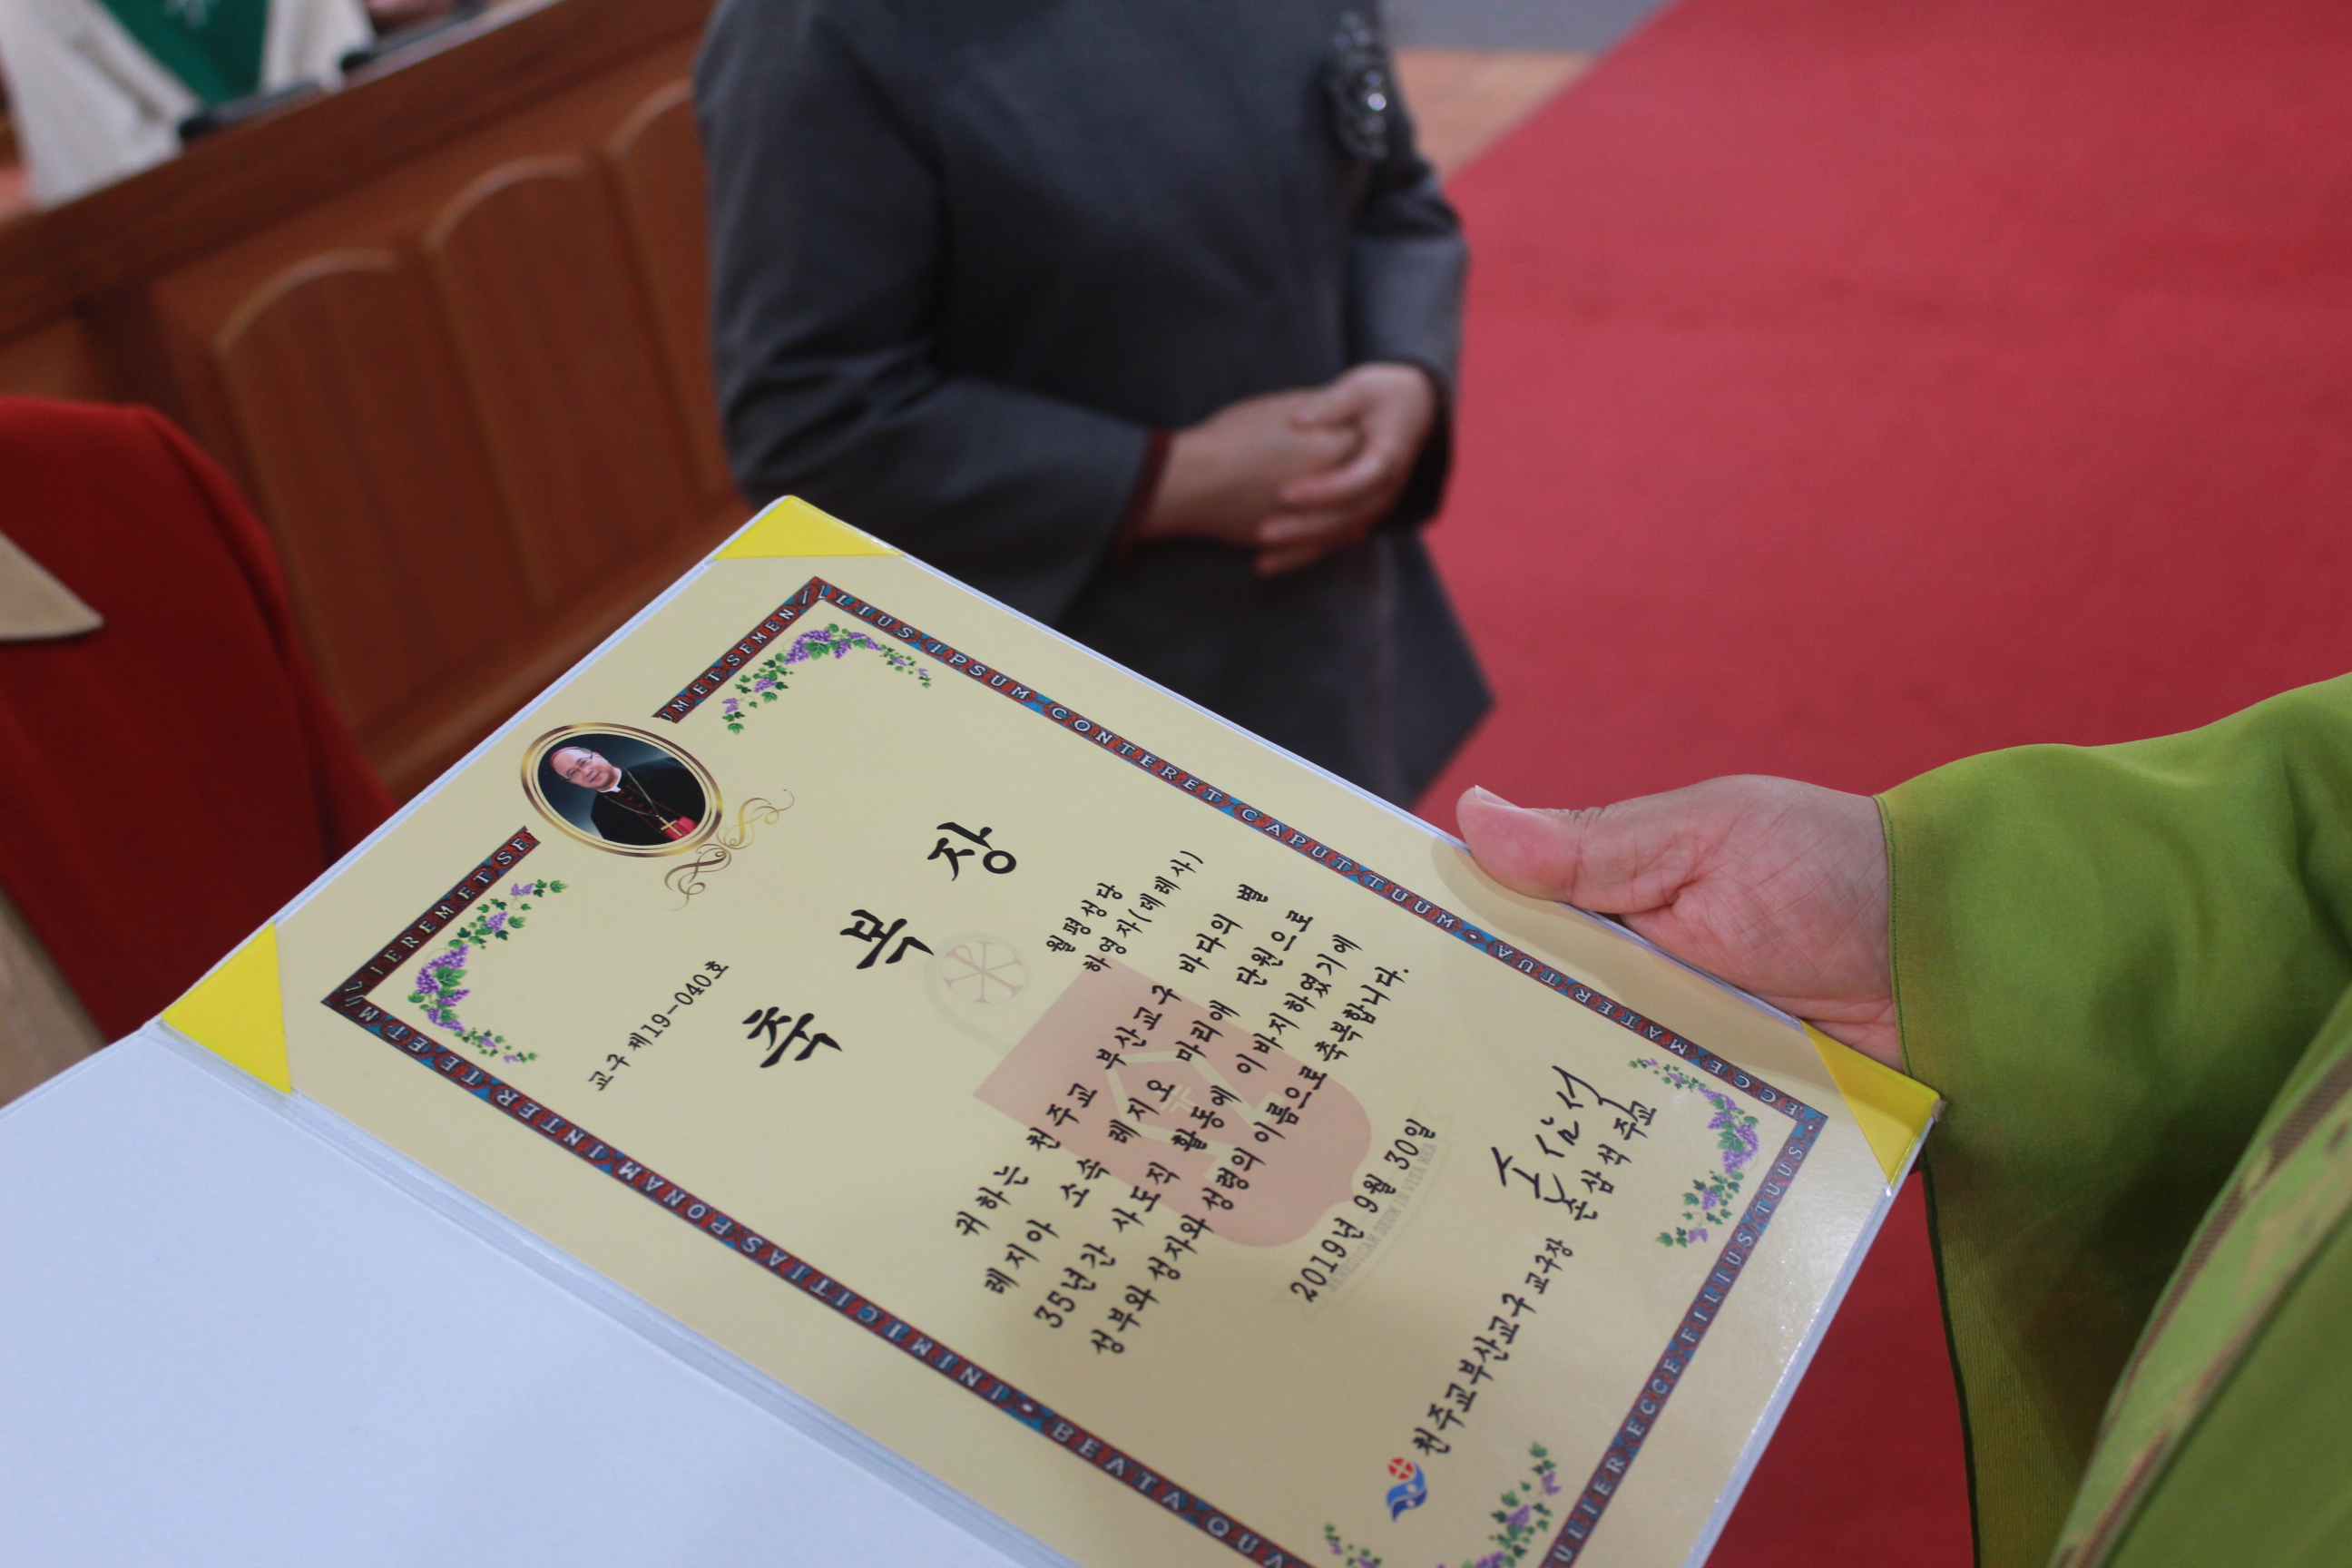 교구 제19-040호
축 복 장
월평성당
하영자(데레사)
귀하는 천주교 부산교구 바다의 별
레지아 소속 레지오 마리애 단원으로
35년간 사도직 활동에 이바지하였기에
성부와 성자와 성령의 이름으로 축복합니다.
2019년 9월 30일
BENEDICAM DEUM IN VITA MEA
천주교부산교구 교구장 손삼석 주교
손삼석
UMET SEMEN
ILLIUS IPSUM CONTERET CAPUT TUUM · VA
MULIEREM ET SE
INIMICITIAS PONAM INTER TE ET M
· BEATA QUA
ULIER ECCE FILIUS TUUS ·
ECCE MATER TUA